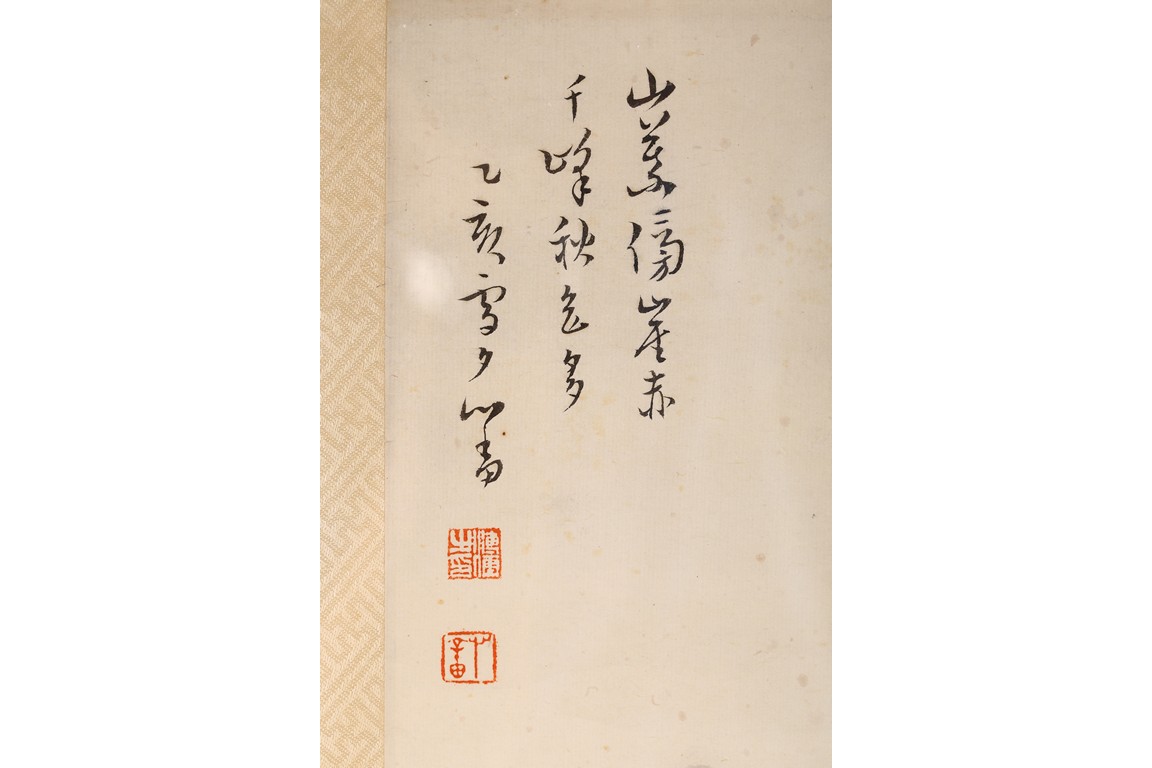 山葉傍崖赤
千峰秋色多
乙亥雪夕 心畬
溥儒之印